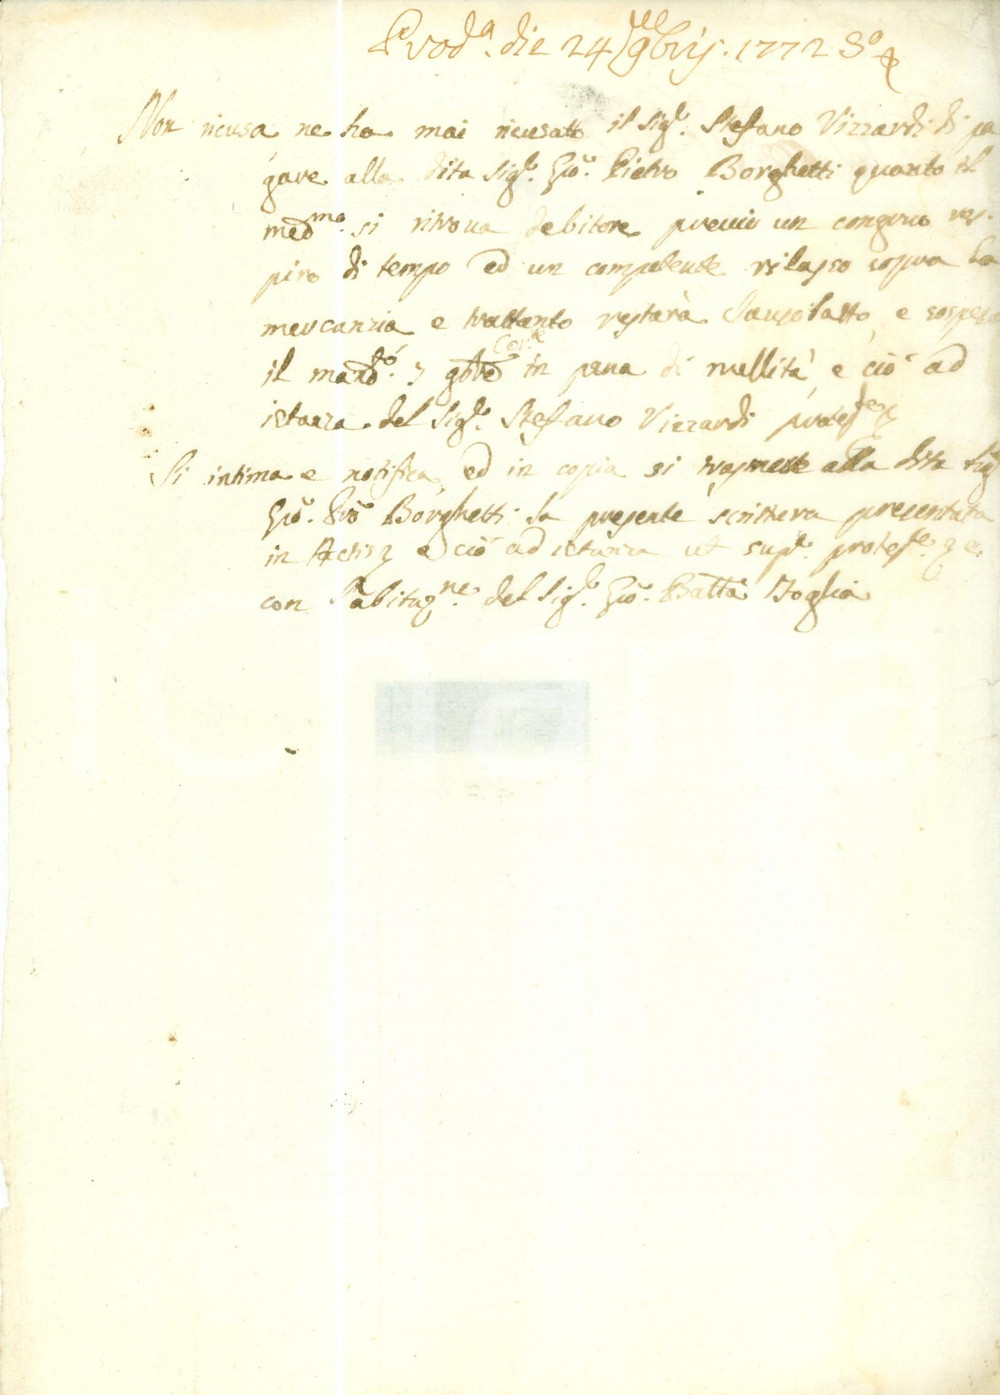 Prod.ª die 24 9bris. 1772 S.º
Non ricusa ne ha mai ricusatto il Sig.r Stefano Vizzardi di pa
gare alla Dita Sig.r Gio. Pietro Borghetti quanto il
med.mo si ritrova debitore previo un congruo res-
piro di tempo ed un competente rilasso sopra la
mercanzia e trattanto restarà Saupolatto e sospeso
il mand.o 7 9bre Cor.te in pena di nullità, e ciò ad
istanza del Sig.r Stefano Vizzardi protest.e
Si intima e notifica, ed in copia si trasmette alla Dita Sig.r
Gio. Pro Borghetti la presente scrittura presentata
in Actis e ciò ad istanza ut sup.a protest.e
con l'abitaz.ne del Sig.r Gio. Batta Foglia